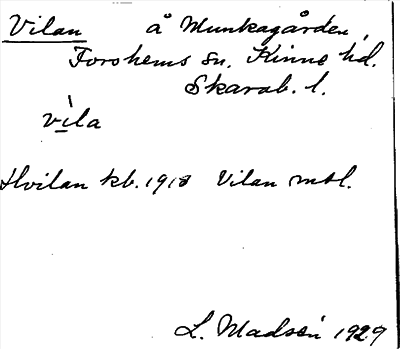 Vilan å Munkagården,
Forshems sn. Kinne hd.
Skarab. l.
vìla
Hvilan kb. 1918 Vilan mtl.
L. Madsén 1927